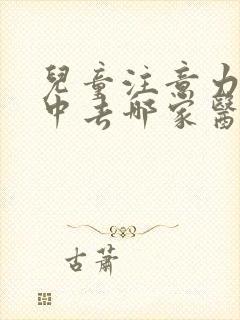 兒童注意力
中去哪家醫
古蕭